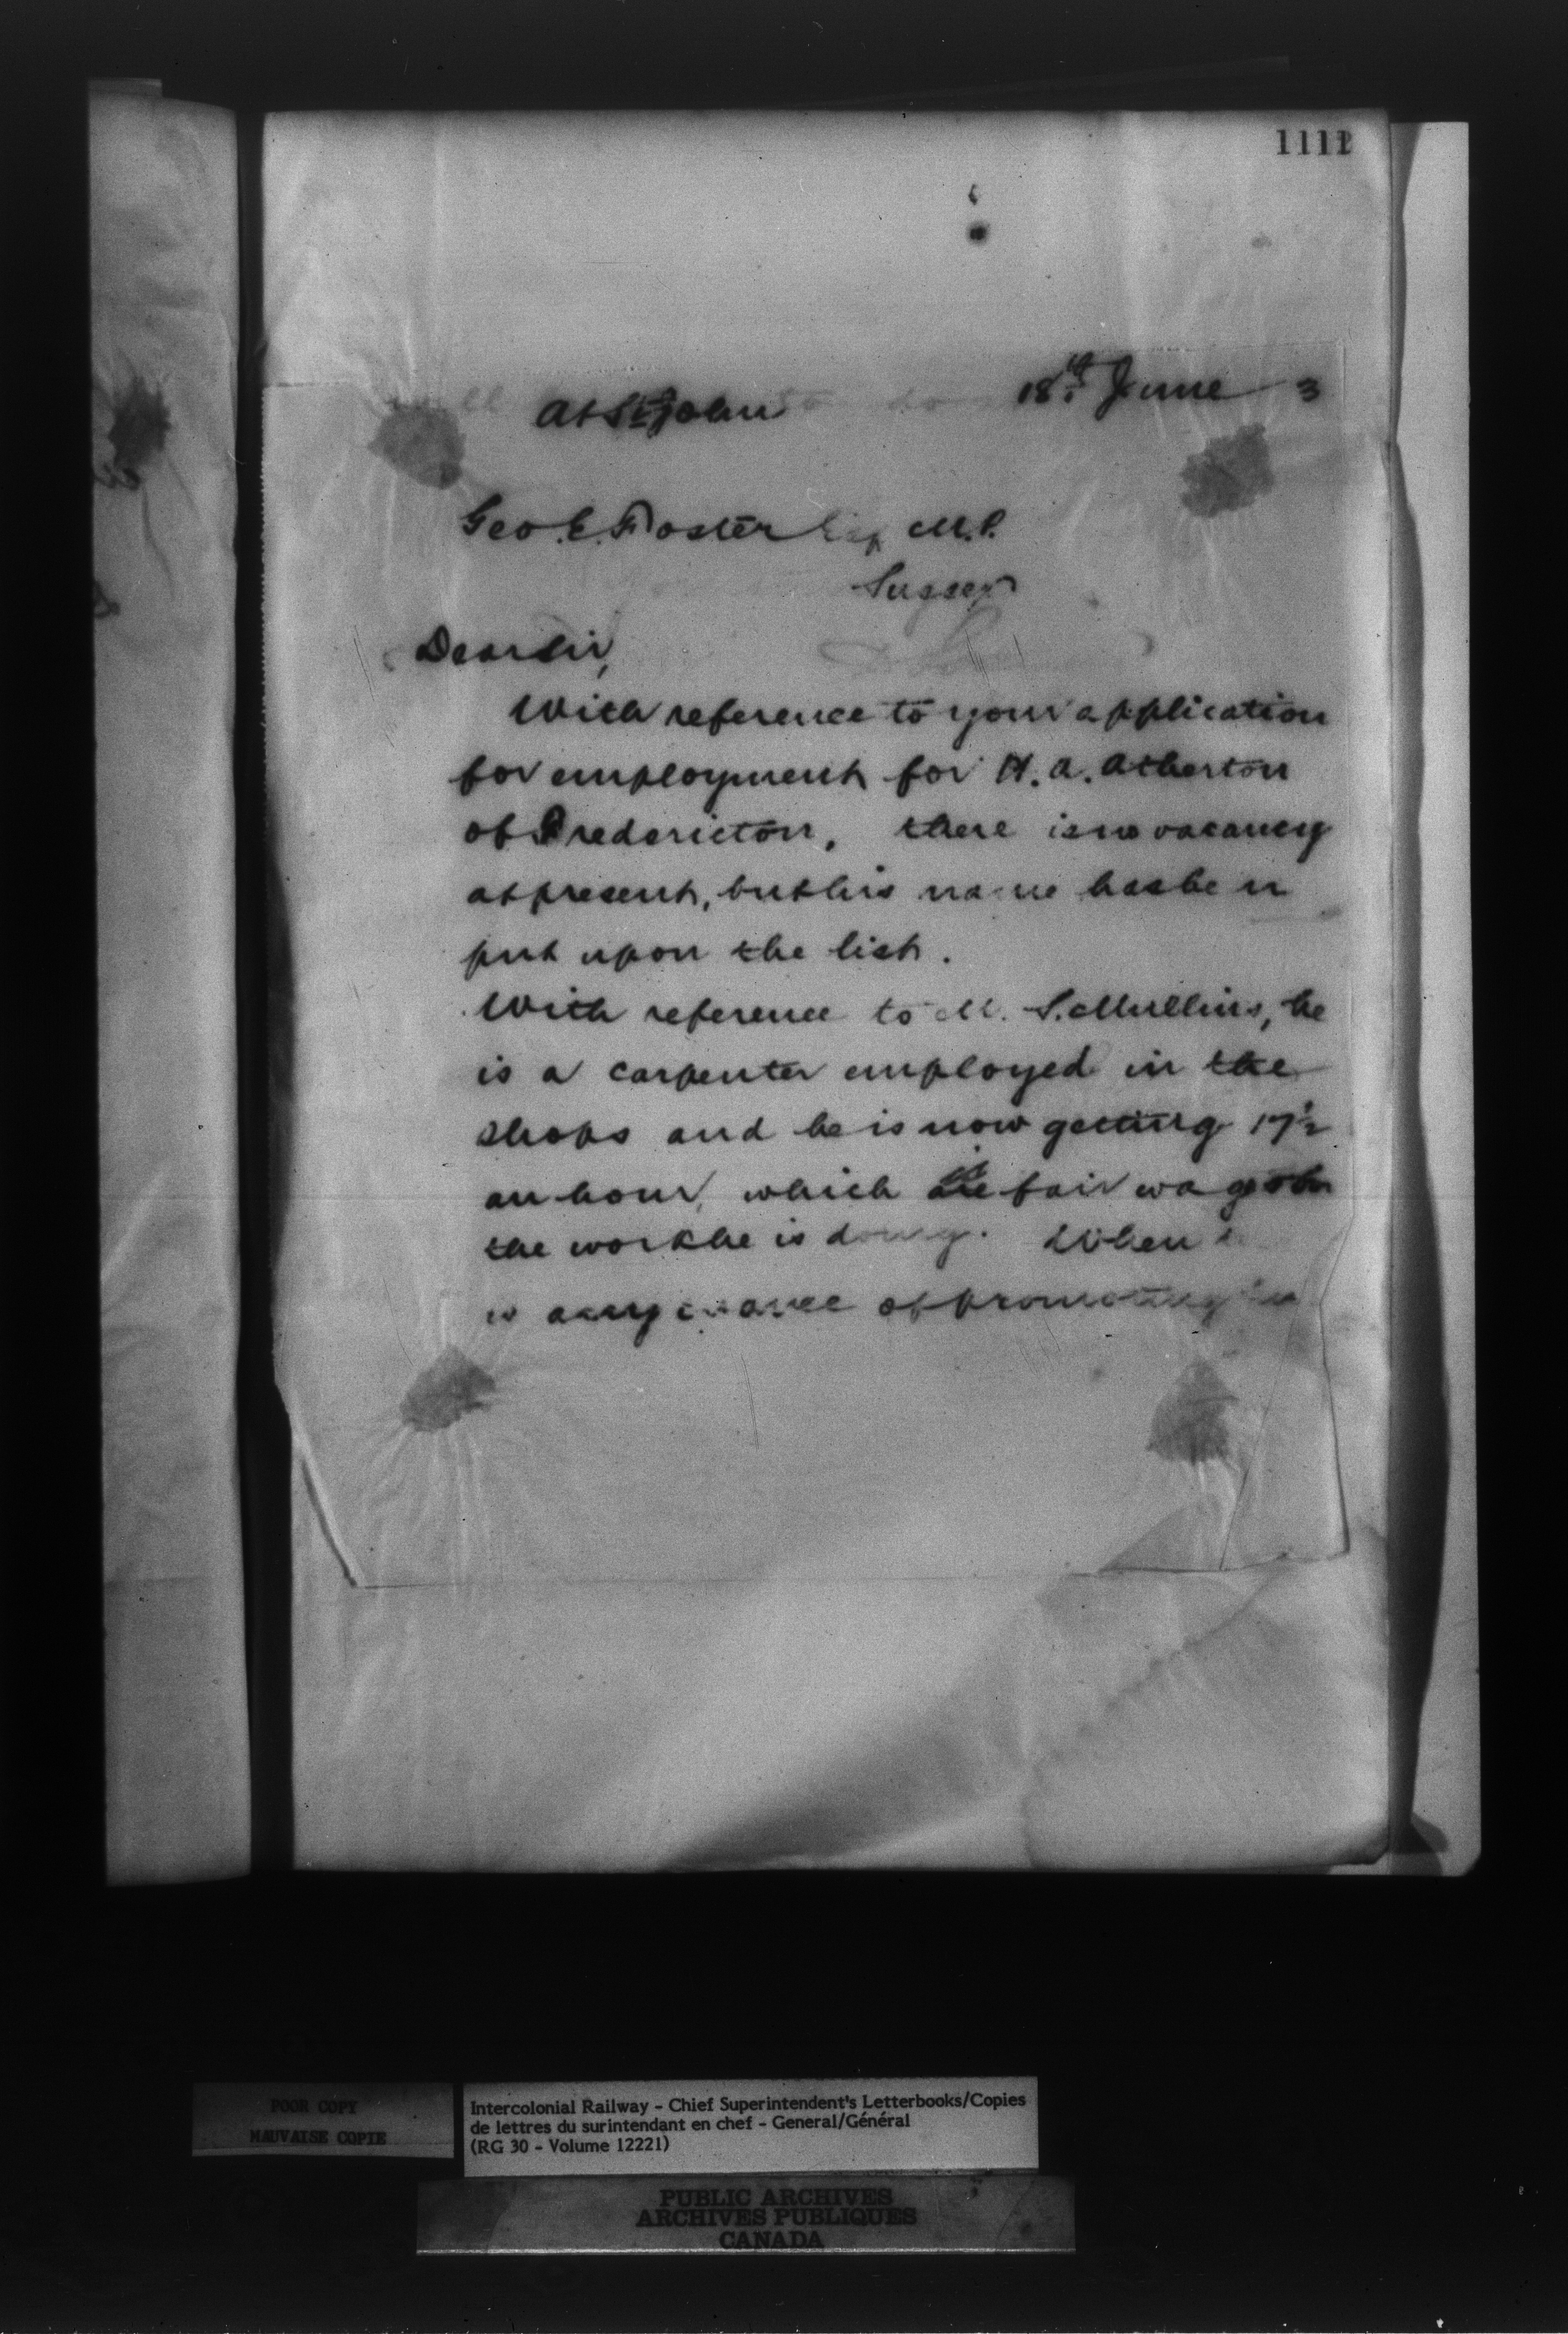 1111
At St John 18th June 3
Geo. E. Foster Esq M.P.
Sussex
Dear Sir,
With reference to your application
for employment for H. A. Atherton
of Fredericton, there is no vacancy
at present, but his name has been
put upon the list.
With reference to M. S. Mullins, he
is a carpenter employed in the
shops and he is now getting 17½
an hour, which is fair wages for
the work he is doing. When
is any chance of promoting him
POOR COPY
MAUVAISE COPIE
Intercolonial Railway - Chief Superintendent's Letterbooks/Copies
de lettres du surintendant en chef - General/Général
(RG 30 - Volume 12221)
PUBLIC ARCHIVES
ARCHIVES PUBLIQUES
CANADA